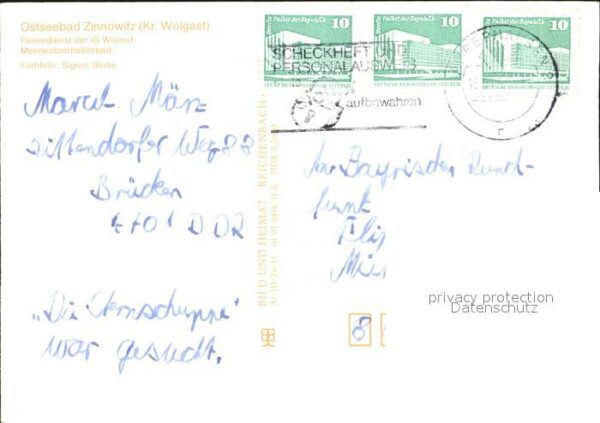 Ostseebad Zinnowitz (Kr. Wolgast)
Feriendienst der IG Wismut
Meerwasserhallenbad
Farbfoto: Signet, Berlin
Palast der Republik 10
Palast der Republik 10
Palast der Republik 10
SCHECKHEFT UND
PERSONALAUSWEIS
aufbewahren
Marcel März
Sittendorfer Weg 88
Brücken
4701 DDR
"Die Sternschuppe"
war gesucht.
BILD UND HEIMAT REICHENBACH
An Bayrischen Rund-
funk
8
privacy protection
Datenschutz